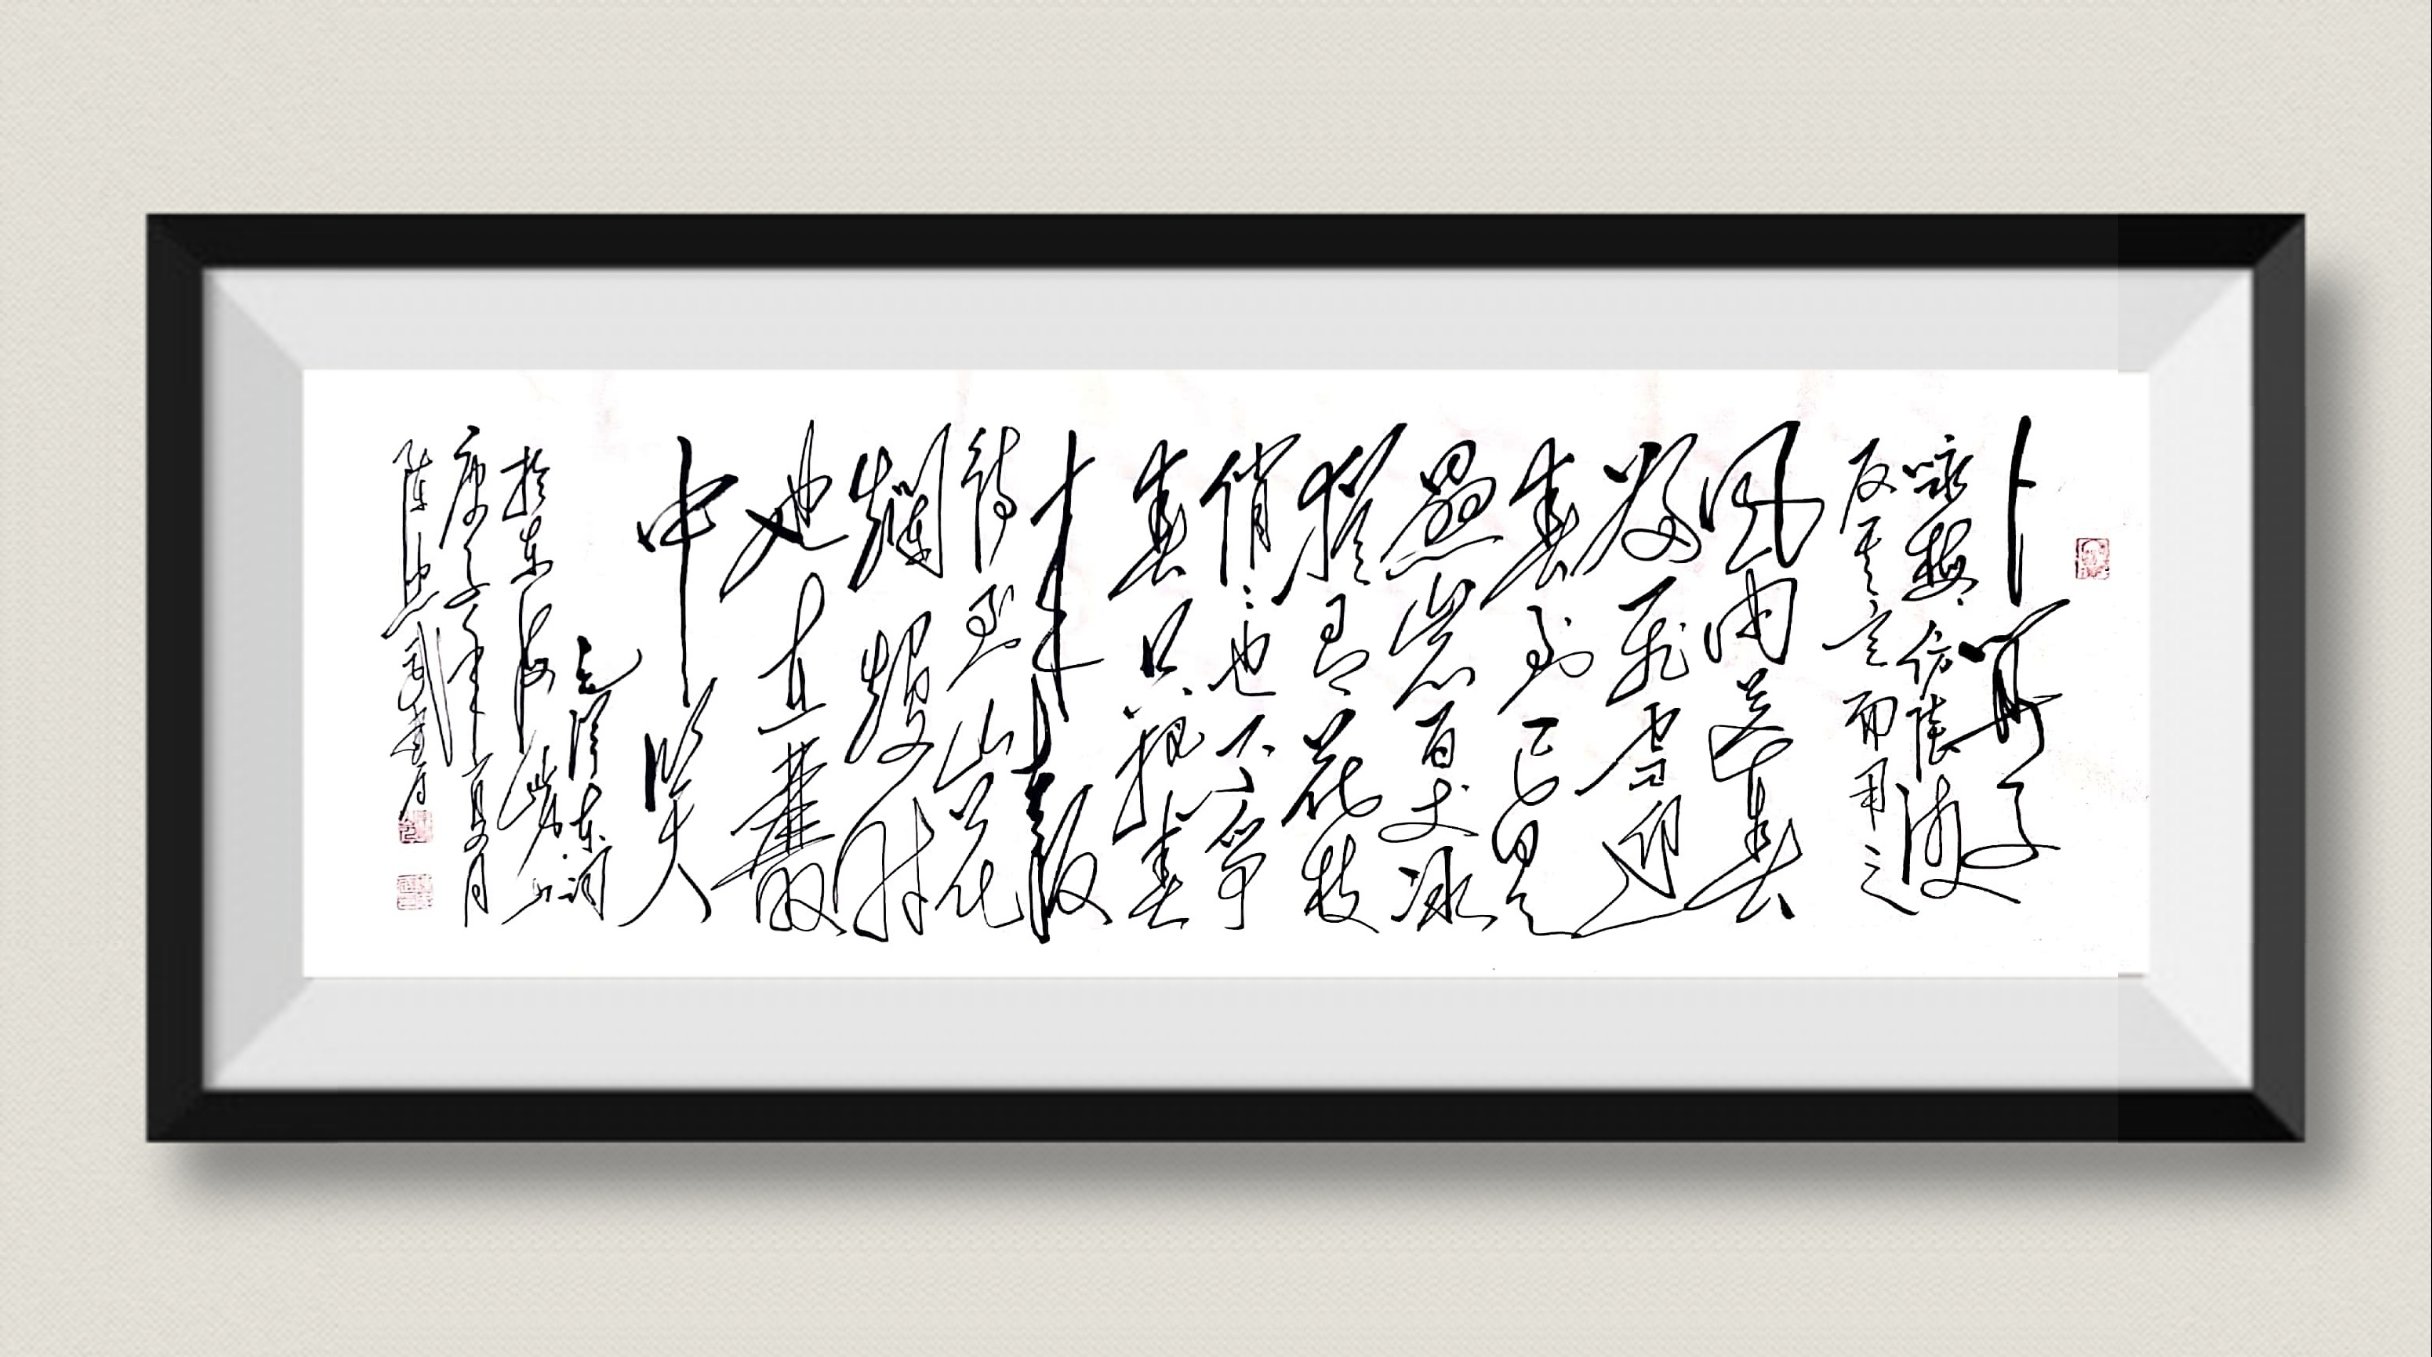 卜算子
咏梅仿陆游
反其意而用之
风雨送春
归飞雪迎
春到已是
悬崖百丈冰
犹有花枝
俏俏也不争
春只把春
来报
待到山花
烂漫时
她在丛
中笑
毛泽东词
於东海
庚子年夏月
陈忠武书